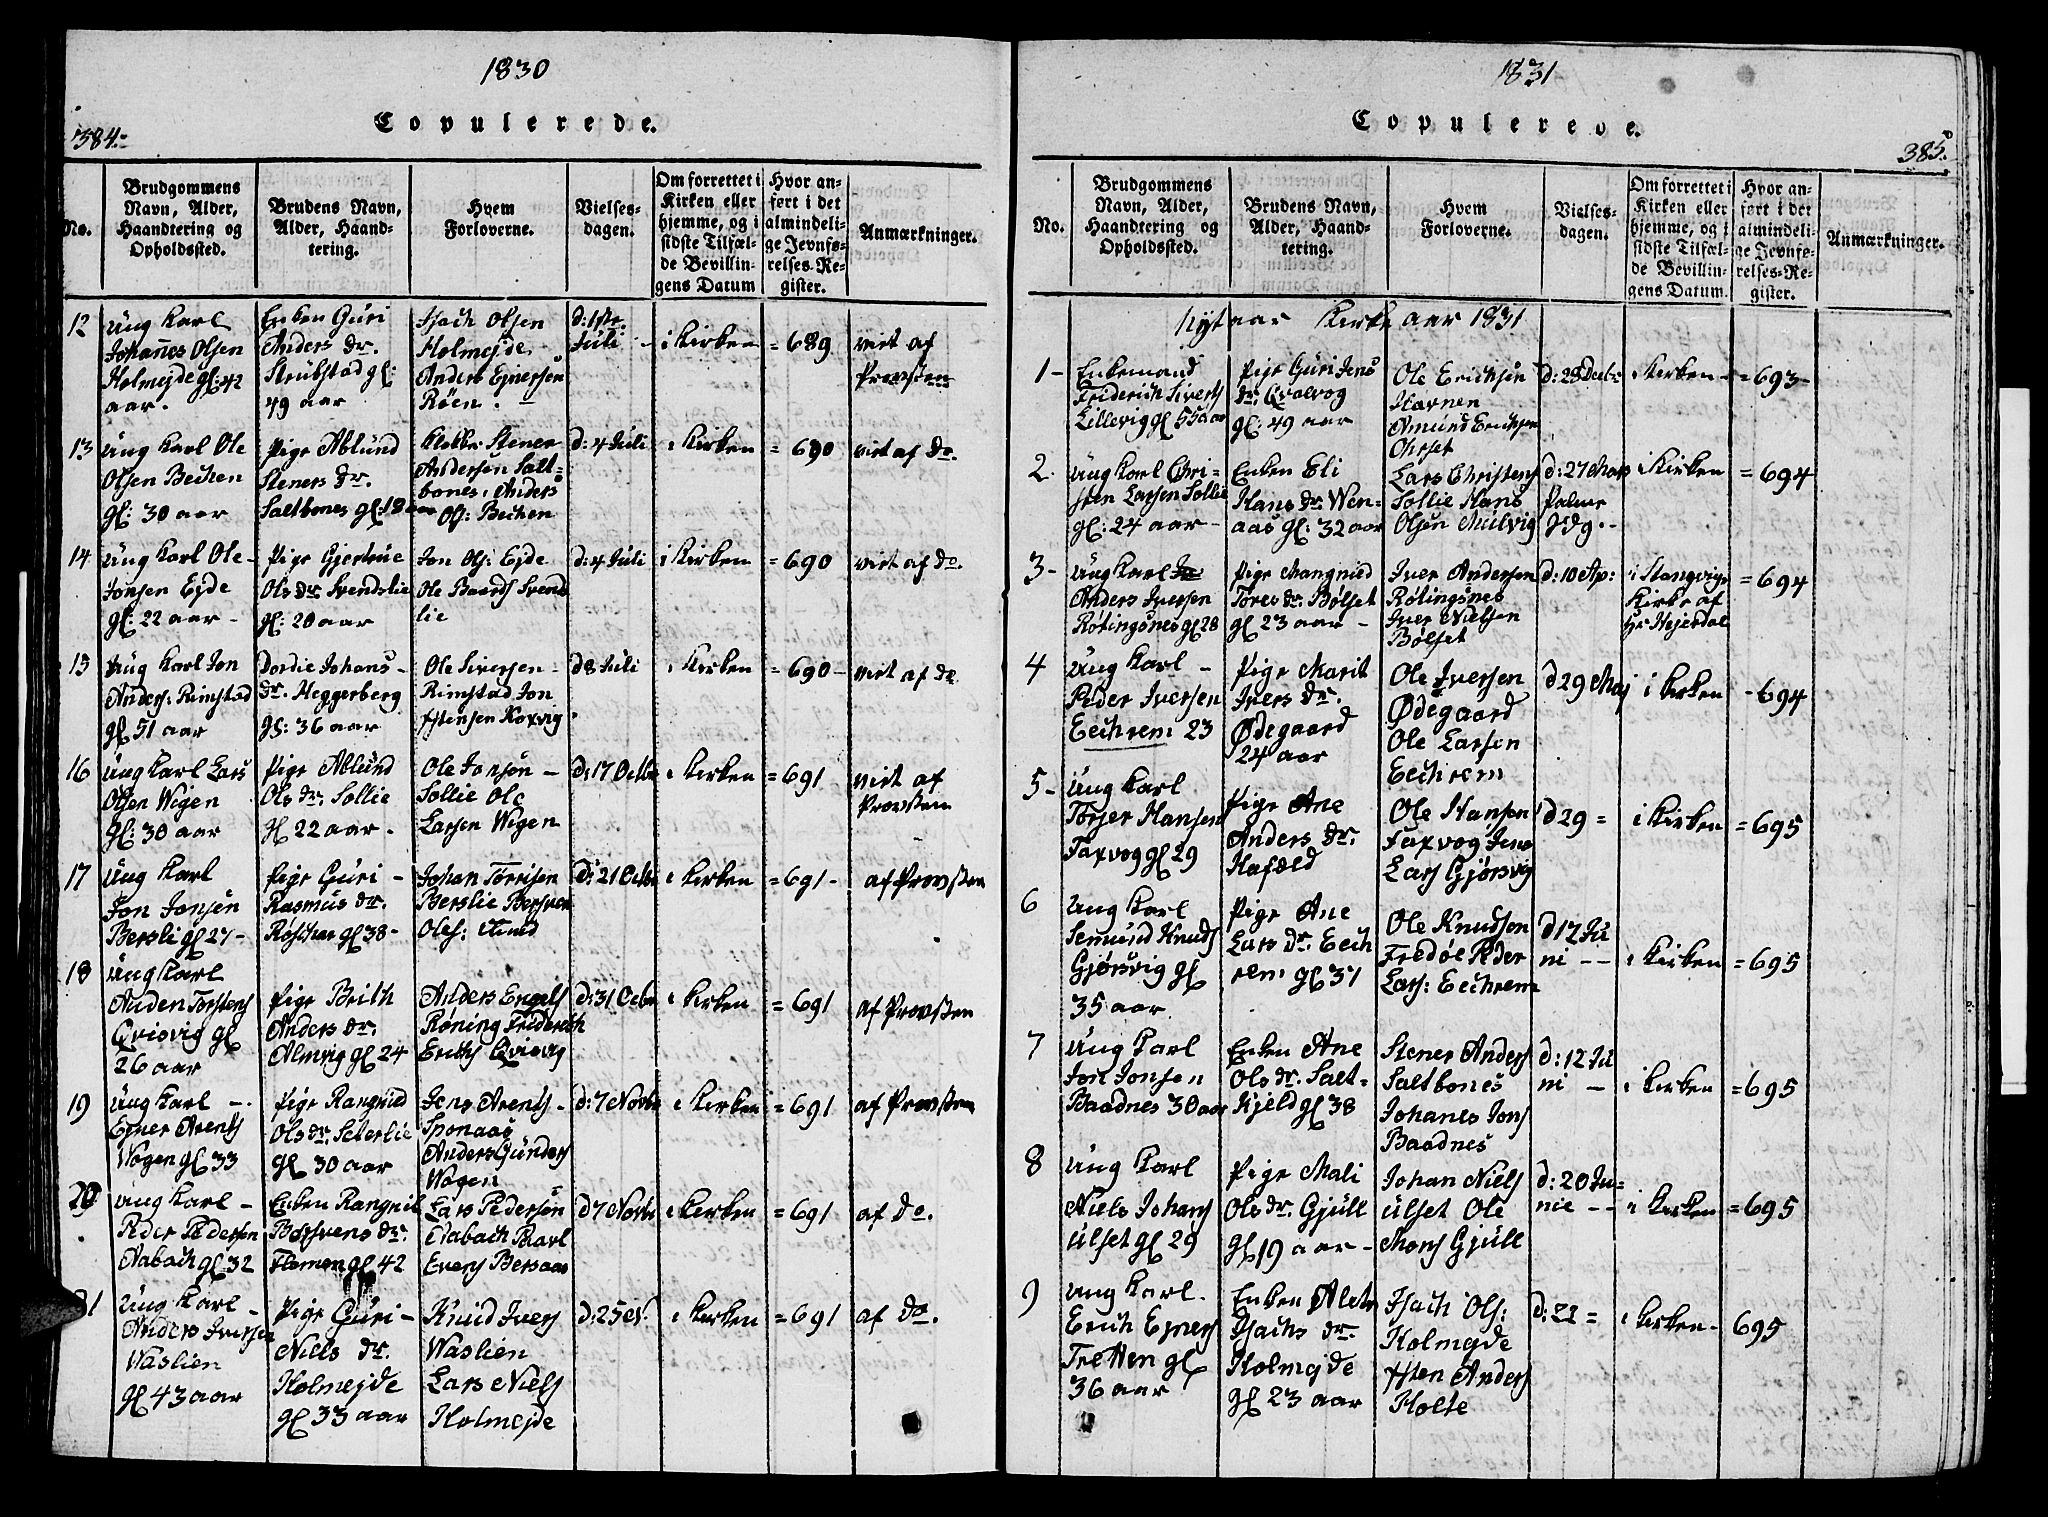 1830
Copulerede.
384.
No.
Brudgommens
Navn, Alder,
Haandtering og
Opholdssted.
Brudens Navn,
Alder, Haand-
tering.
Hvem
Forloverne.
Vielses-
dagen.
Om forrettet i
Kirken eller
hjemme, og i
sidste Tilfæl-
de Bevillin-
gens Datum
Hvor an-
ført i det
almindeli-
ge Jevnfø-
relses-Re-
gister.
Anmærkninger.
12
Ung Karl
Johannes Olsen
Holmejde gl: 42
aar.
Enken Guri
Anders dr.
Strubstad gl:
49 aar
Isach Olsen
Holmejde
Anders Ejnersen
Røen.
d: 1ste
Juli
i Kirken
= 689
viet af
Provsten
13
Ung Karl Ole
Olsen Bechen
gl: 30 aar
Pige Ablund
Steners dr.
Saltbones gl: 18 aar
Klokker Stener
Andersøn Salt-
bones, Anders
Ols: Bechen
d: 4 Juli
i Kirken
= 690
viet af do.
14
Ung Karl Ole
Jonsen Ejde
gl: 22 aar
Pige Gjertrue
Ols dr. Svendslie
gl: 20 aar
Jon Ols: Ejde
Ole Baards Svens
lie
d: 4 Juli
i Kirken
= 690
viet af do.
15
Ung Karl Jon
Anders: Rimstad
gl 51 aar
Dordie Johans
dr. Heggerberg
gl: 36 aar
Ole Siversen
Rimstad Jon
Koxvig
d 8 Juli
i Kirken
= 690
viet af do
16
Ung Karl Lars
Olsen Wigen
gl: 30 aar
Pige Ablund
Ols dr. Sollie
gl 22 aar
Ole Jonsøn
Sollie Ole
Larsen Wigen
d: 17 Octbr
i Kirken
= 691
viet af
Provsten
17
Ung Karl
Jon Jonsen
Bersli gl 27
Pige Guri
Rasmus dr.
gl 38
Johan Torrisen
Berslie Bersven
Oles:
d: 21 Octbr
i Kirken
= 691
af Provsten
18
Ung Karl
Auden Torstens
Qvisvig gl
26 aar
Pige Brith
Anders dr.
Almvig gl 24
Anders Engels
Røning Friderich
Erichs Qvisvig
d: 31 Octbr
i Kirken
= 691
af Provsten
19
Ung Karl
Ejner Arents
Wogen gl 33
Pige Rangnild
Ols dr. Seterlie
gl 30 aar
Jens Arents
Sponaas
Anders Gunders
Wogen
d: 7 Novbr
i Kirken
= 691
af Provsten
20
Ung Karl
Peder Pedersen
Aabach gl 32
Enken Rangnil
Bersvens dr.
gl 42
Lars Pedersøn
Aabach Paarl
Evers Bersaas
d 7 Novbr
i Kirken
= 691
af do.
21
Ung Karl
Anders Iversen
Waslien
gl 43 aar
Pige Guri
Niels dr.
Holmejde
gl 33 aar
Knud Ivers
Waslien
Lars Niels
Holmejde
d: 25
i Kirken
= 691
af do.
1831
Copulerede.
385.
No.
Brudgommens
Navn, Alder,
Haandtering og
Opholdssted.
Brudens Navn,
Alder, Haand-
tering.
Hvem
Forloverne.
Vielses-
dagen.
Om forrettet i
Kirken eller
hjemme, og i
sidste Tilfæl-
de Bevillin-
gens Datum.
Hvor an-
ført i det
almindeli-
ge Jevnfø-
relses-Re-
gister.
Anmærkninger.
Nyt aar Kirke aar 1831
1
Enkemand
Friderich Sivers
Lillevig gl 55 aar
Pige Guri Jens
dr. Qvalvog
gl: 49 aar
Ole Erichsøn
Havnen
Amund Erichsen
Ohrset
d: 28 Decbr
i Kirken
= 693
2
Ung Karl Chri-
sten Larsen Sollie
gl: 24 aar
Enken Eli
Hans dr. Wen-
aas gl: 32 aar
Lars Christens
Sollie Hans
Olsøn Mulvig
d: 27 Mars
Palme
Sdg.
i Kirken
= 694
3
Ung Karl
Anders Iversen
Røtingsnes gl 28
Pige Mangnild
Tores dr. Bølset
gl 23 aar
Iver Andersen
Røtingsnes
Iver Nielsen
Bølset
d: 10 Ap:
i Stangvigs
Kirke af
Hr Hejerdal
= 694
4
Ung Karl
Peder Iversen
Eechrem 23
Pige Marit
Ivers dr.
Ødegaard
24 aar
Ole Iversen
Ødegaard
Ole Larsen
Eechrem
d 29 Maj
i Kirken
= 694
5
Ung Karl
Torger Hansen
Faxvog gl 29
Pige Ane
Anders dr.
Hafæld
Ole Hansen
Faxvog Jens
Lars Gjørsvig
d 29 =
i Kirken
= 695
6
Ung Karl
Semund Knuds
Gjørsvig gl
35 aar
Pige Ane
Lars dr. Eech
rem gl 37
Ole Knudsøn
Fredøe Peder
Lars: Eechrem
d 12 Ju
ni
i Kirken
= 695
7
Ung Karl
Jon Jonsen
Baadnes 30 aar
Enken Ane
Ols dr. Salt-
kjeld gl 38
Stener Anders
Saltbones
Johanes Jons
Baadnes
d: 12 Ju
ni
i Kirken
= 695
8
Ung Karl
Niels Johans
Ulset gl 29
Pige Mali
Ols dr. Gjull
gl 19 aar
Johan Niels
Ulset Ole
Mons Gjull
d: 20 Ju-
nie
i Kirken
= 695
9
Ung Karl
Erich Ejners
Tretten gl
36 aar
Enken Aleth
Isachs dr.
Holmejde
gl 23 aar
Isach Ols:
Holmejde
Anders
Holte
d: 21 =
i Kirken
695